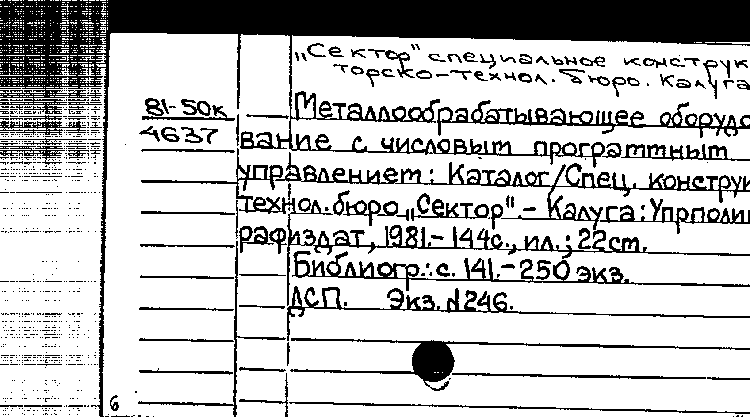 „Сектор" специальное конструк
торско-технол. бюро. Калуга
81-50к Металлообрабатывающее оборудо
4637 вание с числовым программным
управлением: Каталог/Спец. конструк
технол. бюро „Сектор". - Калуга: Упрполи
рафиздат, 1981.- 144с., ил.; 22см.
Библиогр.: с. 141.- 250 экз.
ДСП. Экз. №246.
6